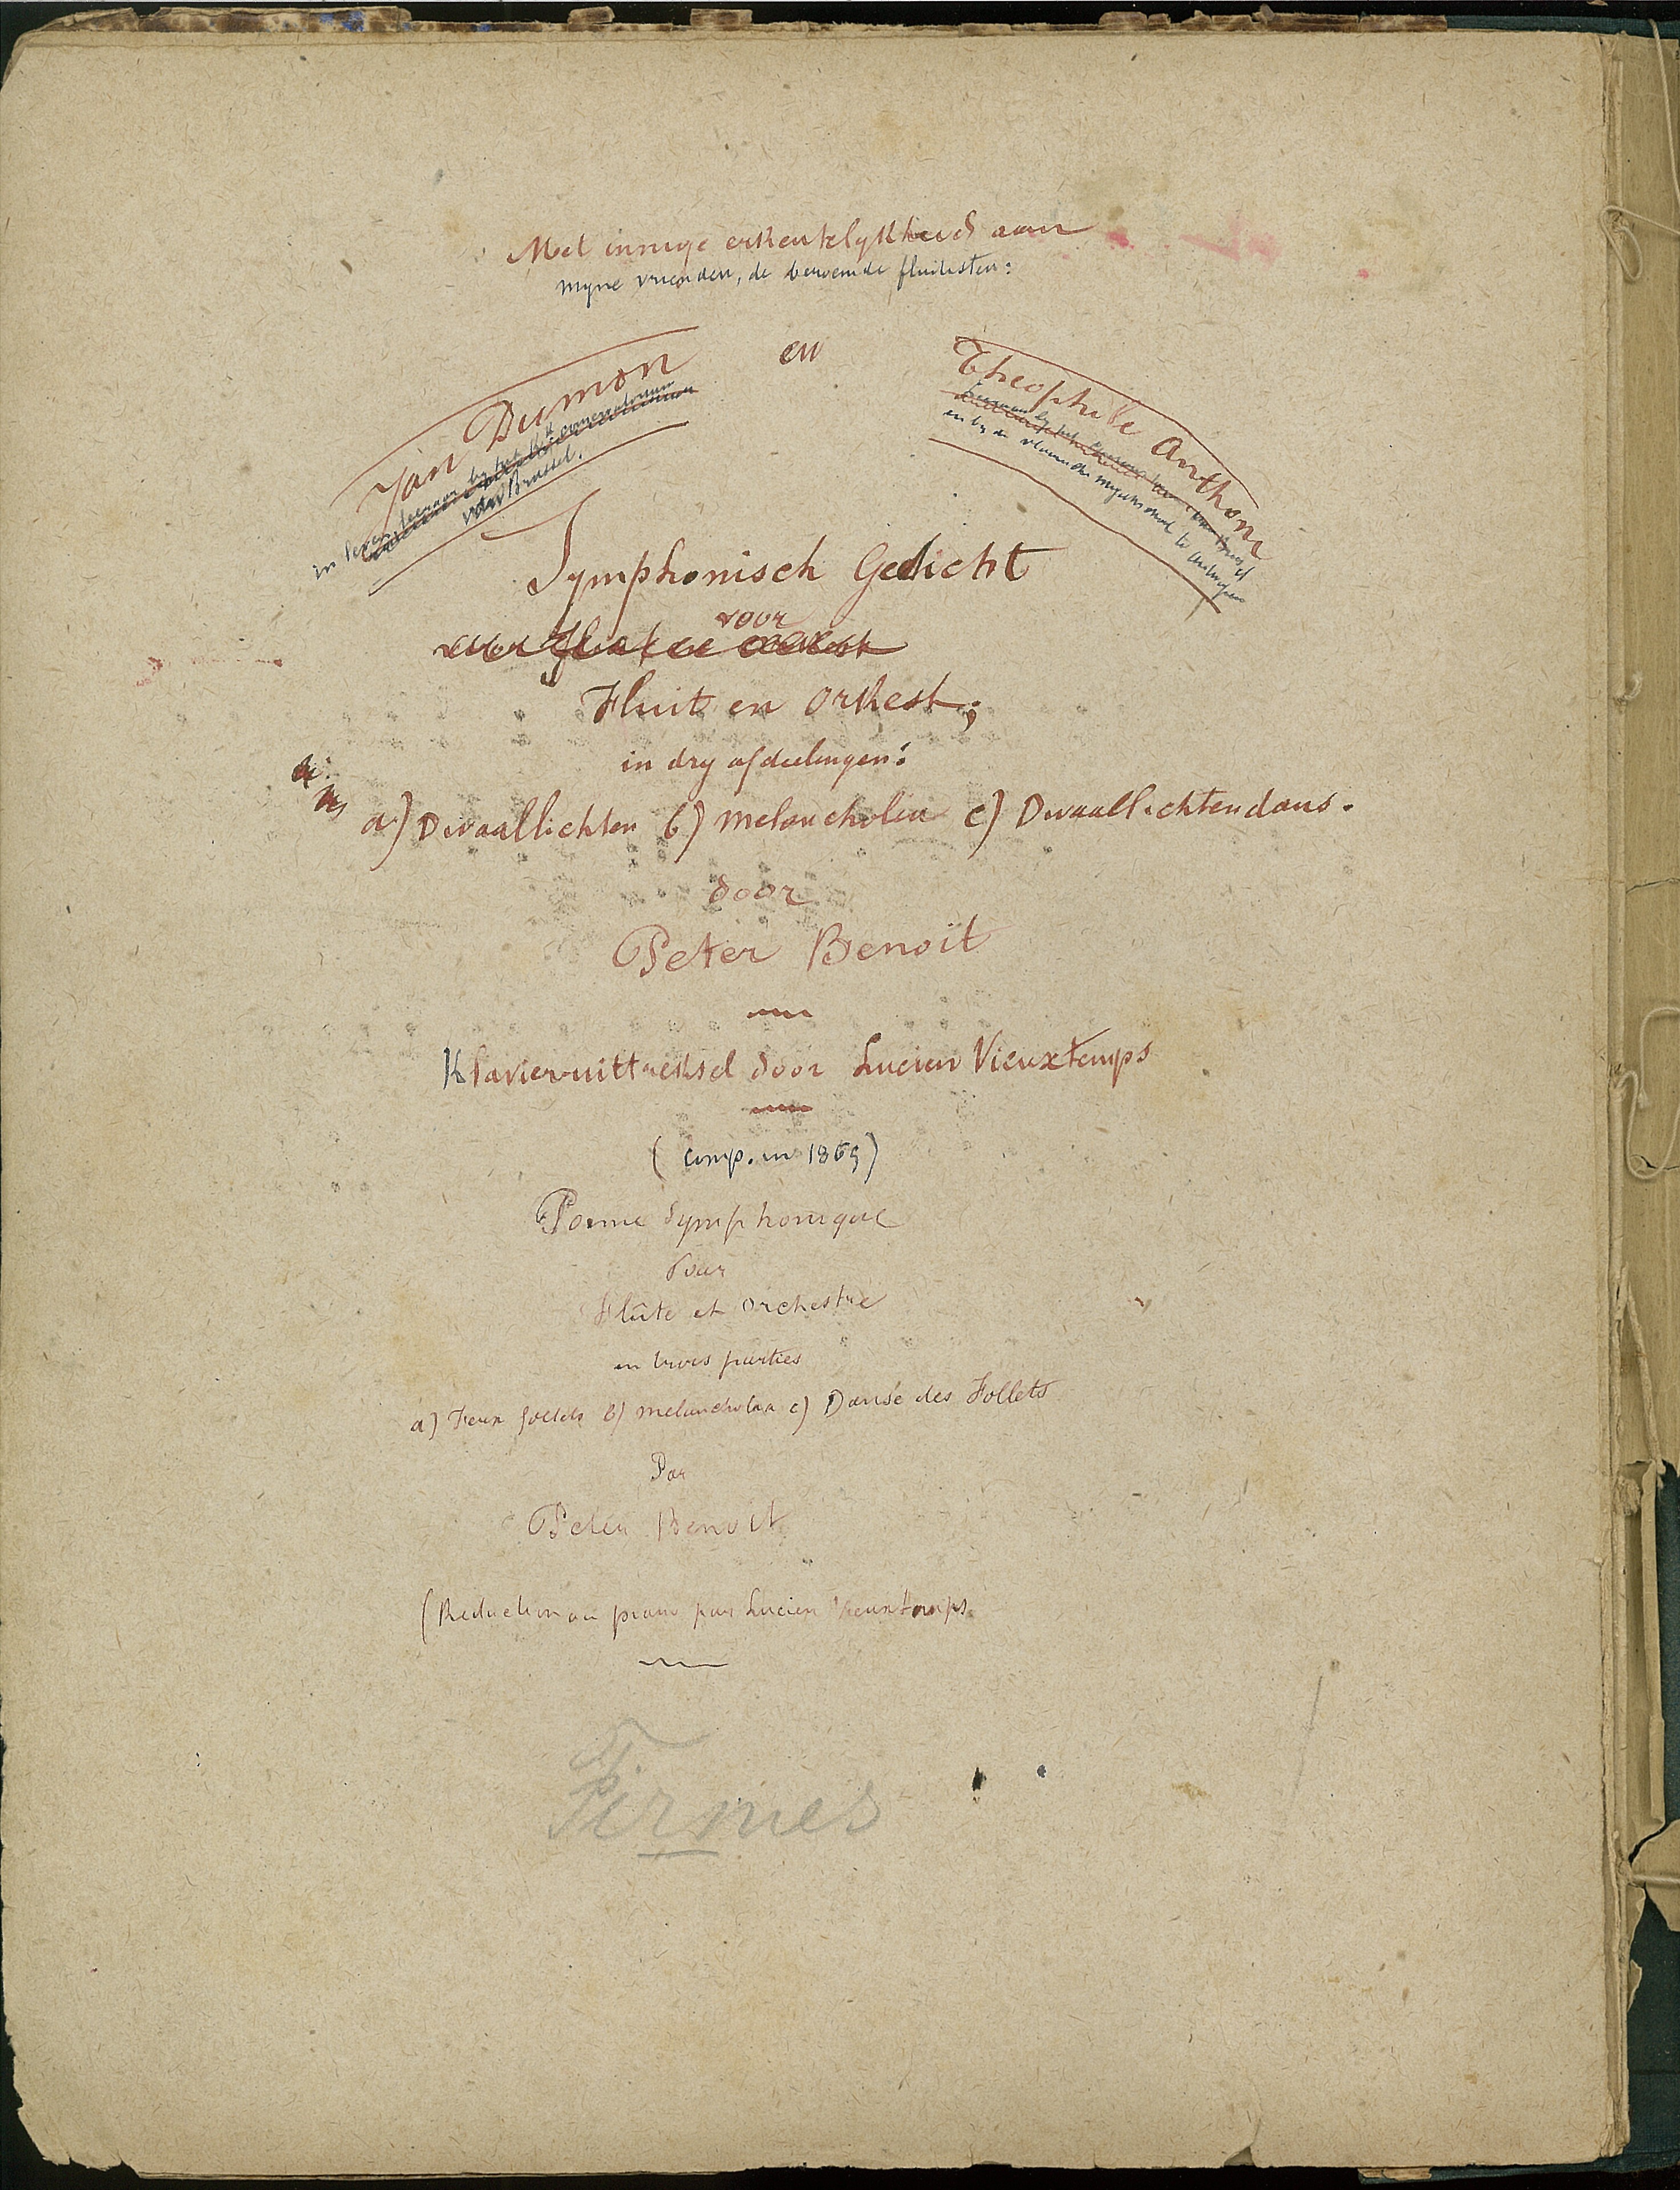 Met innige erkentelykheid aan
myne vrienden, de beroemde fluitisten:
Jan Dumon
en
Theophile Anthoni
in leven leeraar by het Kk conservatorium
van Brussel.
Symphonisch Gedicht
voor
Fluit en Orkest;
in dry afdeelingen:
a) Dwaallichten b) Melancholia c) Dwaallichtendans.
door
Peter Benoit
Klavieruittreksel door Lucien Vieuxtemps
(comp. in 1865)
Poeme Symphonique
Pour
Flûte et Orchestre
en trois parties
a) Feux follets b) Melancholia c) Danse des Follets
Par
Peter Benoit
(Reduction au piano par Lucien Vieuxtemps.